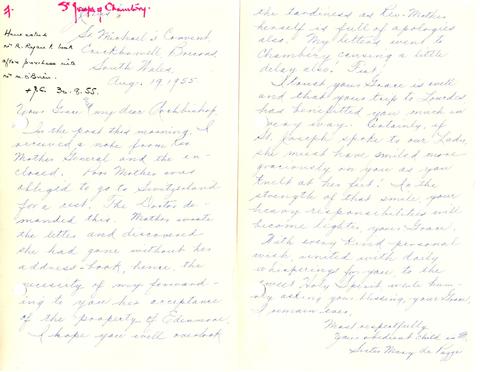 St Joseph of Chambéry.
St. Michael's Convent
Crickhowell, Brecons,
South Wales,
Aug. 19, 1955
Have asked
Mr R. Ryan to look
after purchase with
Mr M. O'Brien.
30.8.55.
Your Grace & my dear Archbishop,
In the post this morning, I
received a note from our
Mother General and the en-
closed. Poor Mother was
obliged to go to Switzerland
for a rest. The Doctor de-
manded this. Mother wrote
the letter and discovered
she had gone without her
address-book, hence, the
necessity of my forward-
ing to you her acceptance
of the property of
I hope you will overlook
the tardiness as Rev. Mother
herself is full of apologies
also. My letters went to
Chambery causing a little
delay also.
I trust your Grace is well
and that your trip to Lourdes
has benefitted you much in
every way. Certainly, if
St. Joseph spoke to our Lady,
she must have smiled more
graciously on you as you
knelt at her feet! In the
strength of that smile, your
heavy responsibilities will
become lighter, your Grace!
With every kind personal
wish, united with daily
whisperings for you, to the
Sweet Holy Spirit while hum-
bly asking your blessing, your Grace,
I remain
Most respectfully
Your obedient child in
Sister Mary de Pazzi